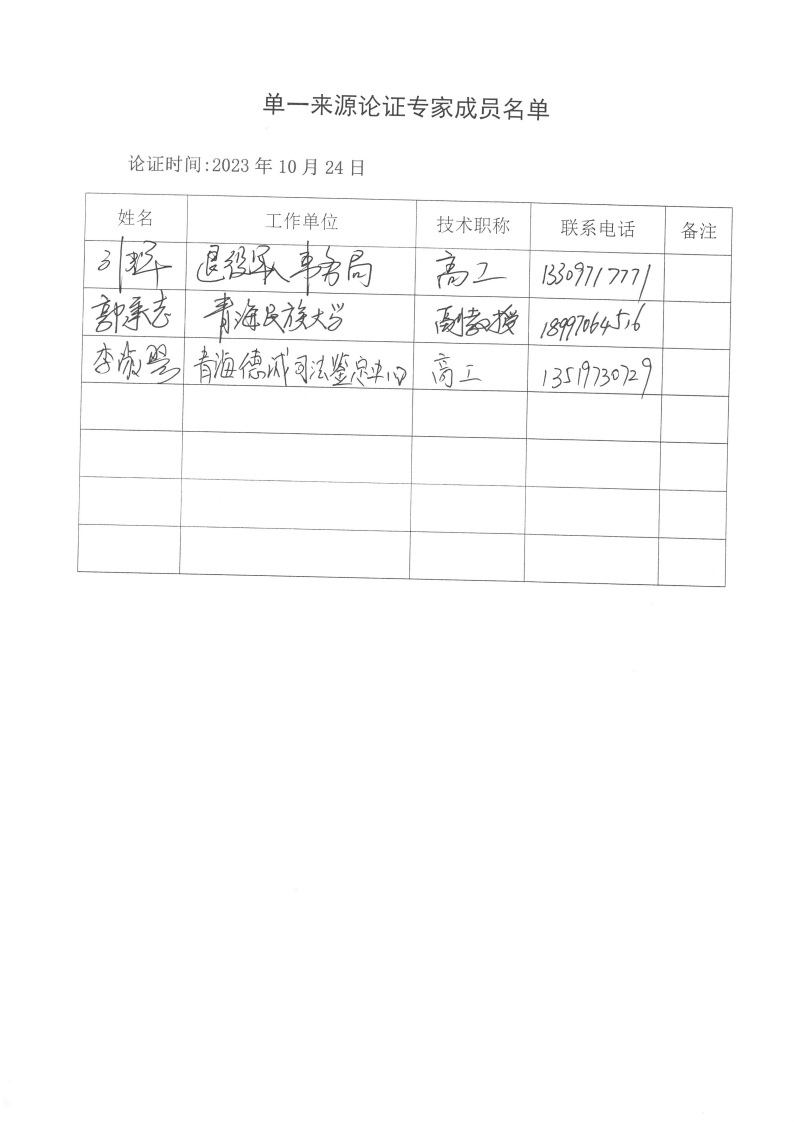 单一来源论证专家成员名单
论证时间:2023年10月24日
姓名 工作单位 技术职称 联系电话 备注
退役军人事务局 高工 13309717771
郭承志 青海民族大学 副教授 18997064516
李 青海德成司法鉴定中心 高工 13519730729